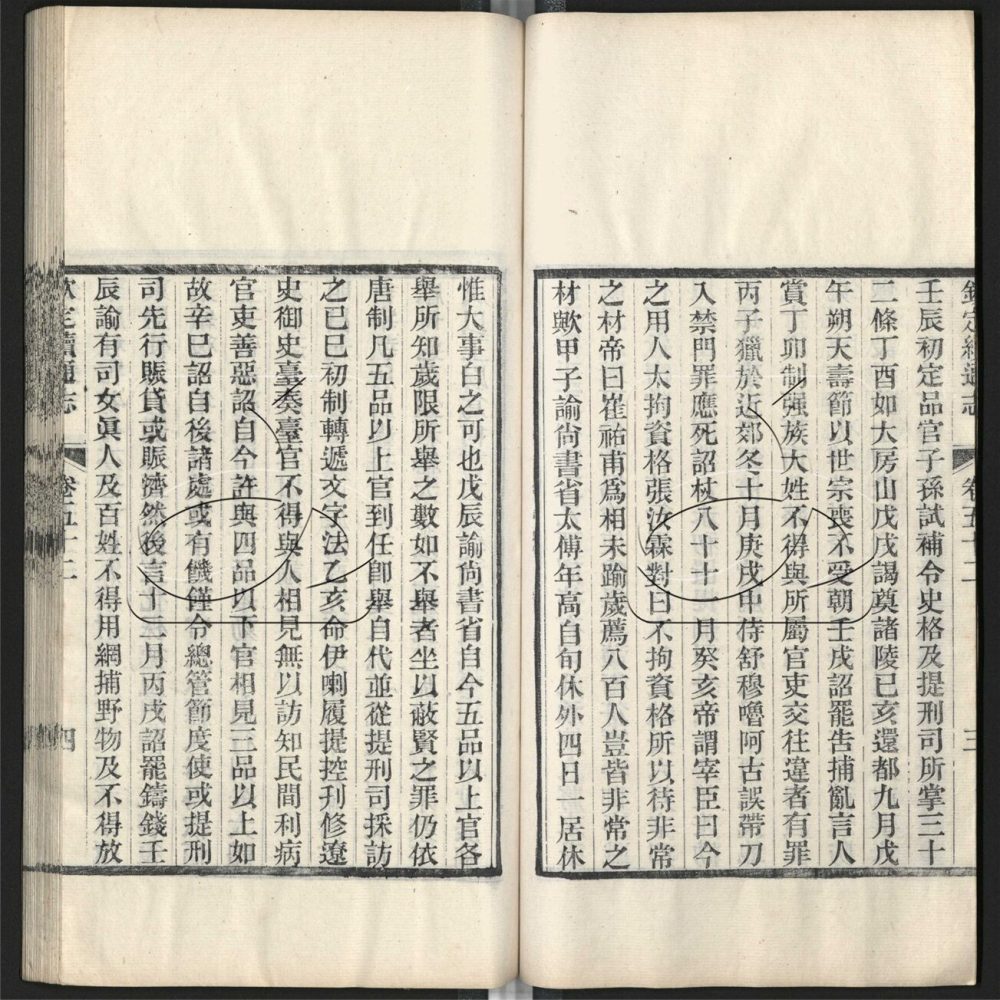 欽定續通志 卷五十二 三
壬辰初定品官子孫試補令史格及提刑司所掌三十
二條丁酉如大房山戊戌謁奠諸陵己亥還都九月戊
午朔天壽節以世宗喪不受朝壬戌詔罷告捕亂言人
賞丁卯制强族大姓不得與所屬官吏交往違者有罪
丙子獵於近郊冬十月庚戌中侍舒穆嚕阿古誤帶刀
入禁門罪應死詔杖八十十一月癸亥帝謂宰臣曰今
之用人太拘資格張汝霖對曰不拘資格所以待非常
之材帝曰崔祐甫爲相未踰歲薦八百人豈皆非常之
材歟甲子諭尚書省太傅年高自旬休外四日一居休
惟大事白之可也戊辰諭尚書省自今五品以上官各
舉所知歲限所舉之數如不舉者坐以蔽賢之罪仍依
唐制凡五品以上官到任卽舉自代並從提刑司採訪
之己巳初制轉遞文字法乙亥命伊喇履提控刊修遼
史御史臺奏臺官不得與人相見無以訪知民間利病
官吏善惡詔自今許與四品以下官相見三品以上如
故辛巳詔自後諸處或有饑僅令總管節度使或提刑
司先行賑貸或賑濟然後言十二月丙戌詔罷鑄錢壬
辰諭有司女眞人及百姓不得用網捕野物及不得放
欽定續通志 卷五十二 四